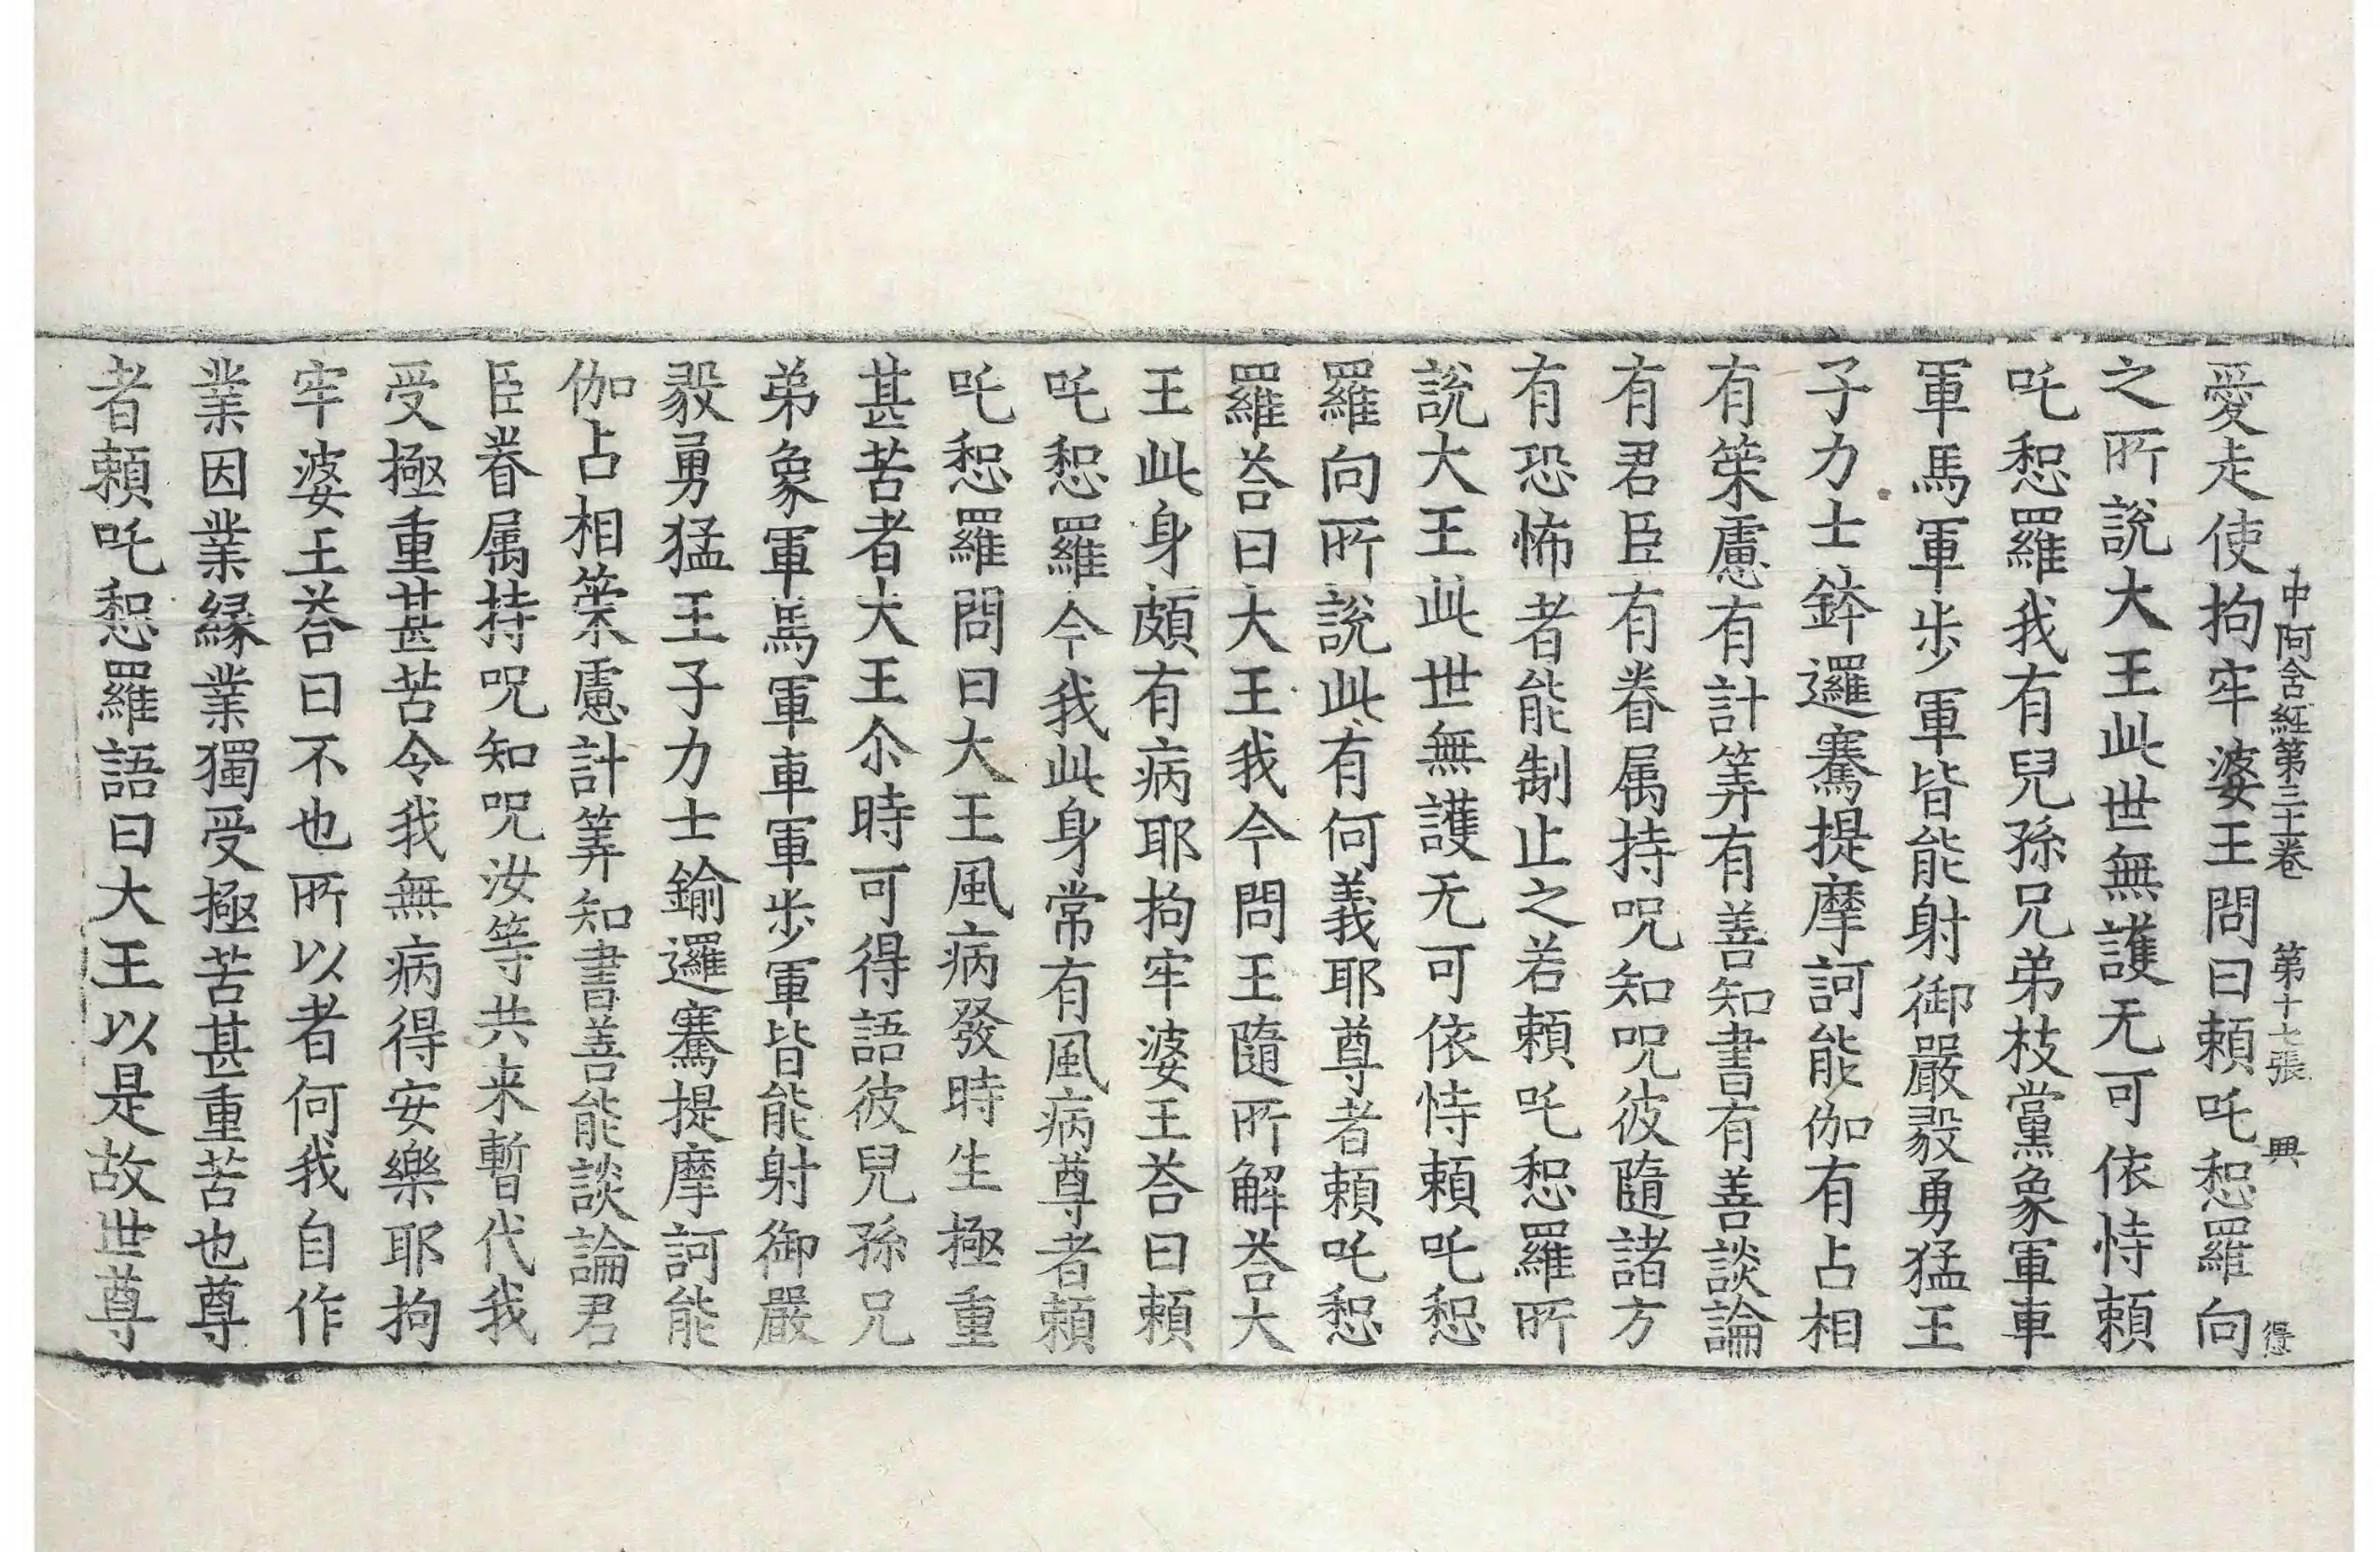 中阿含經第三十一卷　第十七張　興　得
愛走使拘牢婆王問曰頼吒惒羅向
之所說大王此世無護无可依恃頼
吒惒羅我有兒孫兄弟枝黨象軍車
軍馬軍步軍皆能射御嚴毅勇猛王
子力士鉢邏騫提摩訶能伽有占相
有策慮有計筭有善知書有善談論
有君臣有眷属持呪知呪彼隨諸方
有恐怖者能制止之若頼吒惒羅所
說大王此世無護无可依恃頼吒惒
羅向所說此有何義耶尊者頼吒惒
羅荅曰大王我今問王隨所解荅大
王此身頗有病耶拘牢婆王荅曰頼
吒惒羅今我此身常有風病尊者頼
吒惒羅問曰大王風病發時生極重
甚苦者大王尒時可得語彼兒孫兄
弟象軍馬軍車軍步軍皆能射御嚴
毅勇猛王子力士鍮邏騫提摩訶能
伽占相策慮計筭知書善能談論君
臣眷属持呪知呪汝等共来暫代我
受極重甚苦令我無病得安樂耶拘
牢婆王荅曰不也所以者何我自作
業因業緣業獨受極苦甚重苦也尊
者頼吒惒羅語曰大王以是故世尊